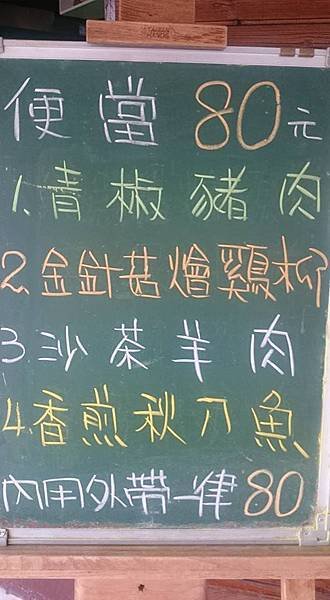 便當80元
1.青椒豬肉
2.金針菇燴鷄柳
3.沙茶羊肉
4.香煎秋刀魚
內用外帶一律80